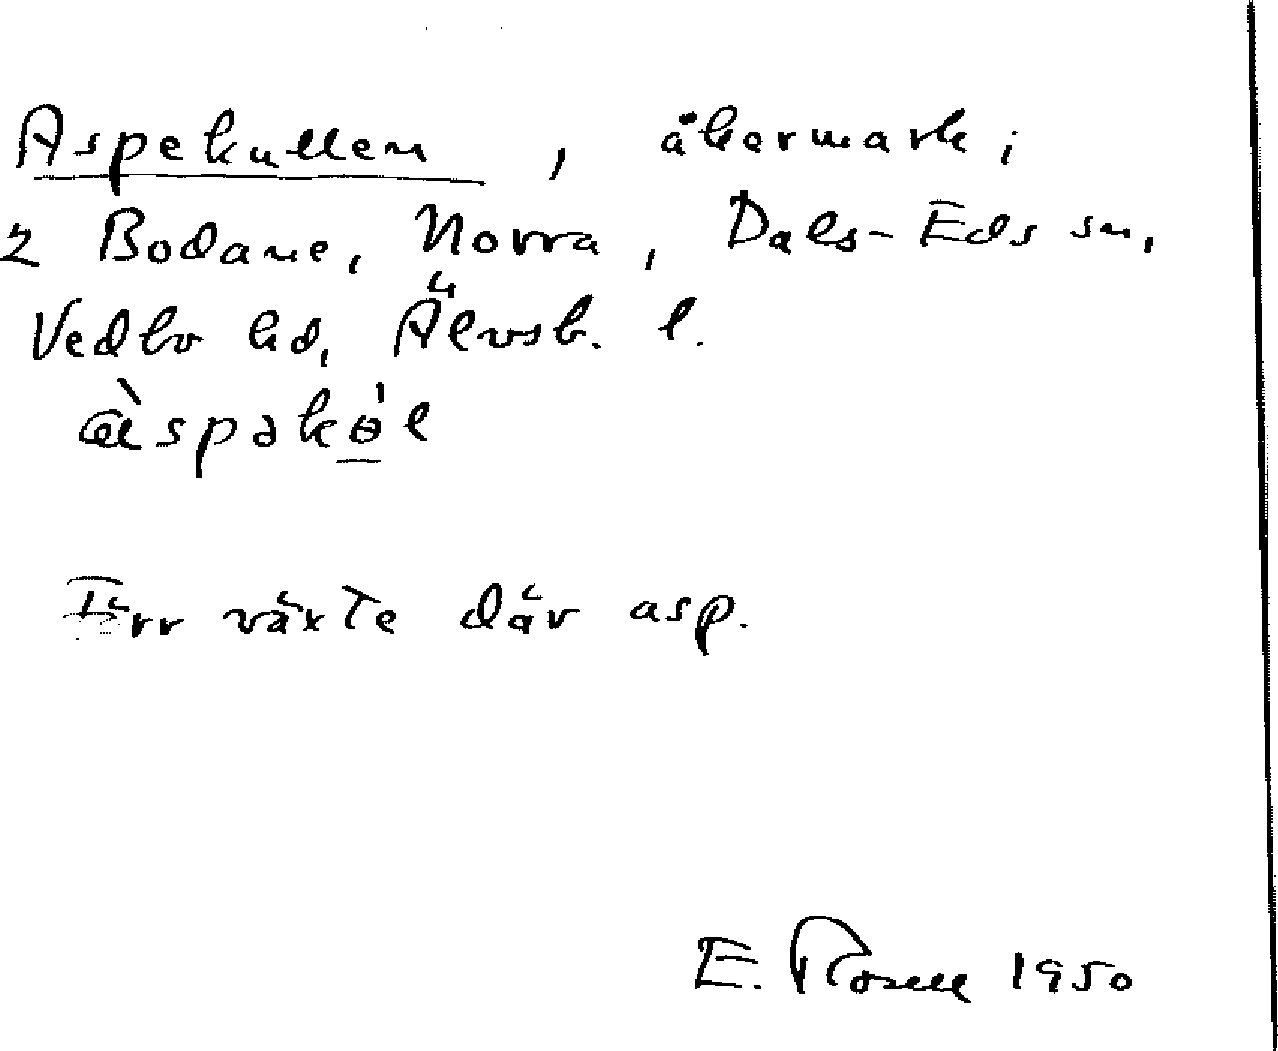 Aspekullen, åkermark i
2 Bodane, Norra, Dals-Eds sn,
Vedbo hd, Älvsb. l.
Förr växte där asp.
E. Rosell 1950